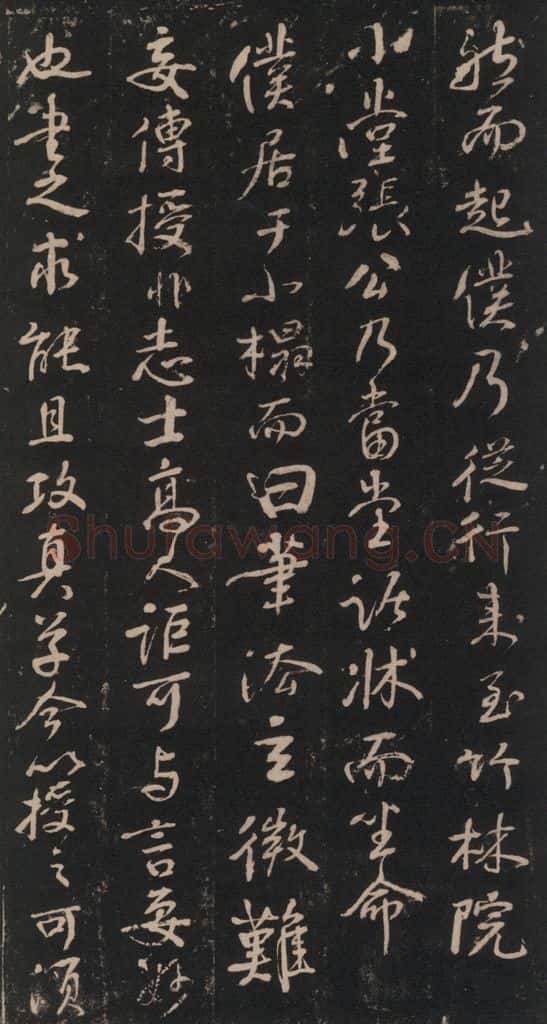 然而起僕乃從行来至竹林院
小堂張公乃當堂踞牀而坐命
僕居于小榻而曰筆法玄微難
妄傳授非志士高人詎可与言要妙
也書之求能且攻真草今以授之可須
Shufawang.CN